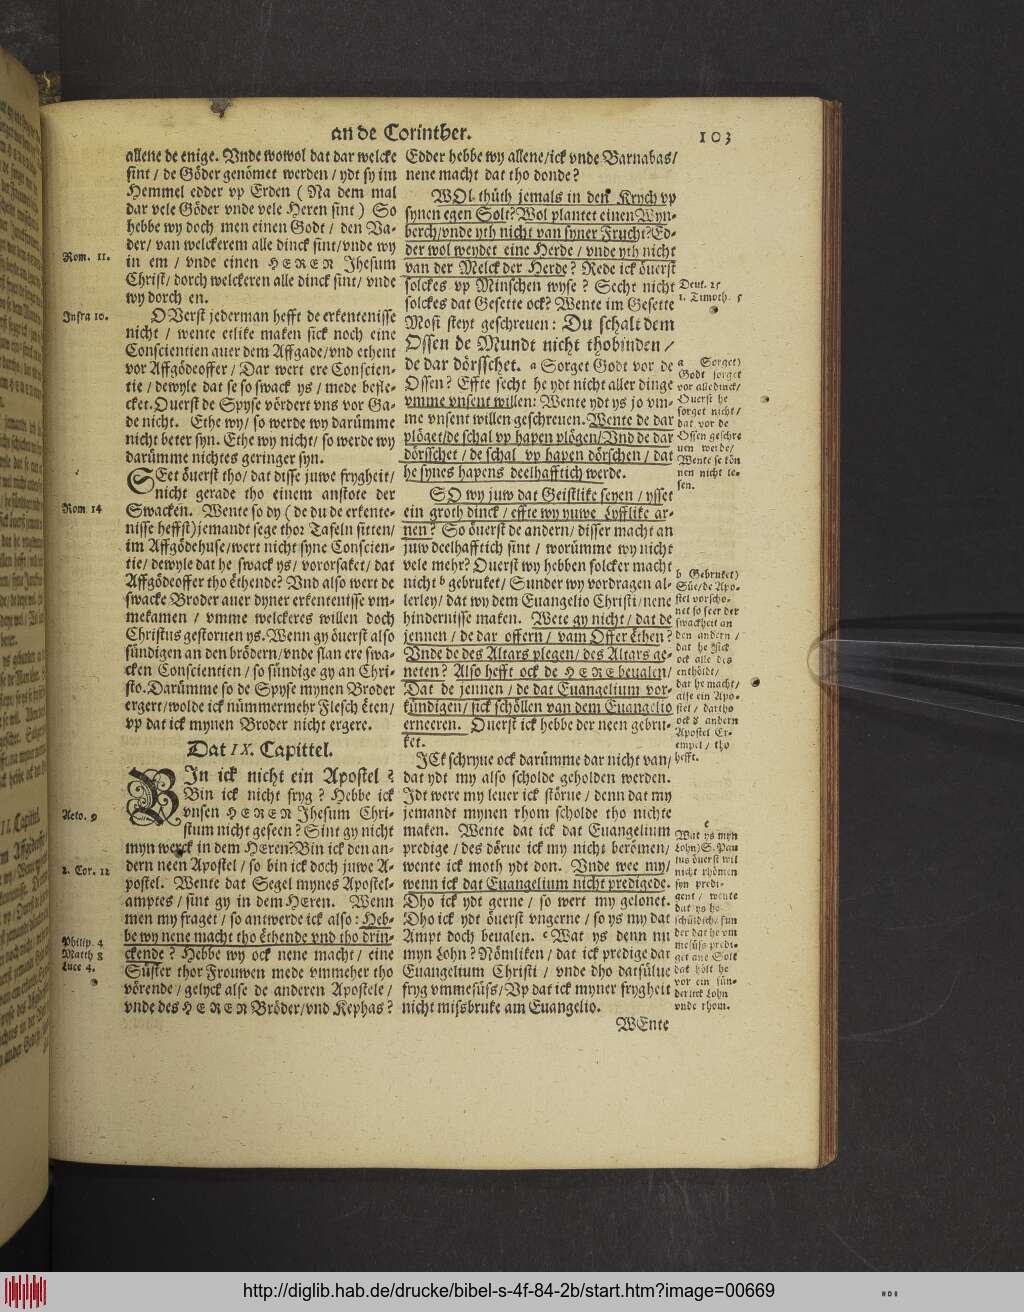 an de Corinther.
103
allene de enige. Vnde wowol dat dar welcke
sint / de Göder genömet werden / ydt sy im
Hemmel edder vp Erden ( Na dem mal
dar vele Göder vnde vele Heren sint ) So
hebbe wy doch men einen Godt / den Va-
der / van welckerem alle dinck sint / vnde wy
in em / vnde einen HEREN Jhesum
Christ / dorch welckeren alle dinck sint / vnde
wy dorch en.
OVerst jederman hefft de erkentenisse
nicht / wente etlike maken sick noch eine
Conscientien auer dem Affgade / vnd ethent
vor Affgödeoffer / Dar wert ere Conscien-
tie / dewyle dat se so swack ys / mede befle-
cket. Ouerst de Spyse vördert vns vor Ga-
de nicht. Ethe wy / so werde wy darümme
nicht beter syn. Ethe wy nicht / so werde wy
darümme nichtes geringer syn.
SEet öuerst tho / dat disse juwe frygheit /
nicht gerade tho einem anstote der
Swacken. Wente so dy ( de du de erkente-
nisse heffst ) jemandt sege thor Tafeln sitten /
im Affgödehuse / wert nicht syne Conscien-
tie / dewyle dat he swack ys / vororsaket / dat
Affgödeoffer tho ethende? Vnd also wert de
swacke Broder auer dyner erkentenisse vm-
mekamen / vmme welckeres willen doch
Christus gestoruen ys. Wenn gy öuerst also
sündigen an den brödern / vnde slan ere swa-
cken Conscientien / so sündige gy an Chri-
sto. Darümme so de Spyse mynen Broder
ergert / wolde ick nümmermehr Flesch eten /
vp dat ick mynen Broder nicht ergere.
Dat IX. Capittel.
BIn ick nicht ein Apostel?
Bin ick nicht fryg? Hebbe ick
vnsen HEREN Jhesum Chri-
stum nicht geseen? Sint gy nicht
myn werck in dem HEren? Bin ick den an-
dern neen Apostel / so bin ick doch juwe A-
postel. Wente dat Segel mynes Apostel-
amptes / sint gy in dem HEren. Wenn
men my fraget / so antwerde ick also: Heb-
be wy nene macht tho ethende vnd tho drin-
ckende? Hebbe wy ock nene macht / eine
Süster thor Frouwen mede vmmeher tho
vörende / gelyck alse de anderen Apostele /
vnde des HEREN Bröder / vnd Kephas?
Rom. 11.
Infra 10.
Rom 14
Acto. 9
2. Cor. 12
Philip. 4
Matth 8
Luce 4.
Edder hebbe wy allene / ick vnde Barnabas /
nene macht dat tho donde?
WOl thüth jemals in den Krych vp
synen egen Solt? Wol plantet einen Wyn-
berch / vnde yth nicht van syner Frucht? Ed-
der wol weydet eine Herde / vnde yth nicht
van der Melck der Herde? Rede ick öuerst
solckes vp Minschen wyse? Secht nicht
solckes dat Gesette ock? Wente im Gesette
Mosi steyt geschreuen: Du schalt dem
Ossen de Mundt nicht thobinden /
de dar dörsschet. a Sorget Godt vor de
Ossen? Effte secht he ydt nicht aller dinge
vmme vnsent willen: Wente ydt ys jo vm-
me vnsent willen geschreuen. Wente de dar
plöget / de schal vp hapen plögen / Vnd de dar
dörsschet / de schal vp hapen dörschen / dat
he synes hapens deelhafftich werde.
SO wy juw dat Geistlike seyen / ysset
ein groth dinck / effte wy yuwe Lyfflike ar-
nen? So öuerst de andern / disser macht an
juw deelhafftich sint / worümme wy nicht
vele mehr? Ouerst wy hebben solcker macht
nicht b gebruket / Sunder wy vordragen al-
lerley / dat wy dem Euangelio Christi / nene
hindernisse maken. Wete gy nicht / dat de
jennen / de dar offern / vam Offer ethen?
Vnde de des Altars plegen / des Altars ge-
neten? Also hefft ock de HERE beualen /
Dat de jennen / de dat Euangelium vor-
kündigen / sick schöllen van dem Euangelio
erneeren. Ouerst ick hebbe der neen gebru-
ket.
ICk schryue ock darümme dar nicht van /
dat ydt my also scholde geholden werden.
Idt were my leuer ick störue / denn dat my
jemandt mynen rhom scholde tho nichte
maken. Wente dat ick dat Euangelium
predige / des dörue ick my nicht berömen /
wente ick moth ydt don. Vnde wee my /
wenn ick dat Euangelium nicht predigede.
Dho ick ydt gerne / so wert my gelonet.
Dho ick ydt öuerst vngerne / so ys my dat
Ampt doch beualen. c Wat ys denn nu
myn Lohn? Nömliken / dat ick predige dar
Euangelium Christi / vnde dho datsülue
fryg vmmesüss / Vp dat ick myner frygheit
nicht missbruke am Euangelio.
WEnte
Deut. 25
1. Timoth. 5
a Sorget)
Godt sorget
vor alle dinck /
Ouerst he
sorget nicht /
dat vor de
Ossen geschre
uen werde /
Wente se kön
nen nicht le-
sen.
b Gebruket)
Süe / de Apo-
stel vorscho-
net so seer der
swackheit an
den andern /
dat he sick
ock alle des
entholdt /
dar he macht /
alse ein Apo-
stel / dartho
ock d andern
Apostel Er-
empel / tho
hefft.
c
Wat ys myn
Lohn) S. Pau
lus öuerst wil
nicht rhömen
syn predi-
gent / wente
dat ys he
schüldich / sun
der dat he vm
mesüss predi-
get ane Solt
dat hölt he
vor ein sün-
derlick Lohn
vnde rhom.
http://diglib.hab.de/drucke/bibel-s-4f-84-2b/start.htm?image=00669